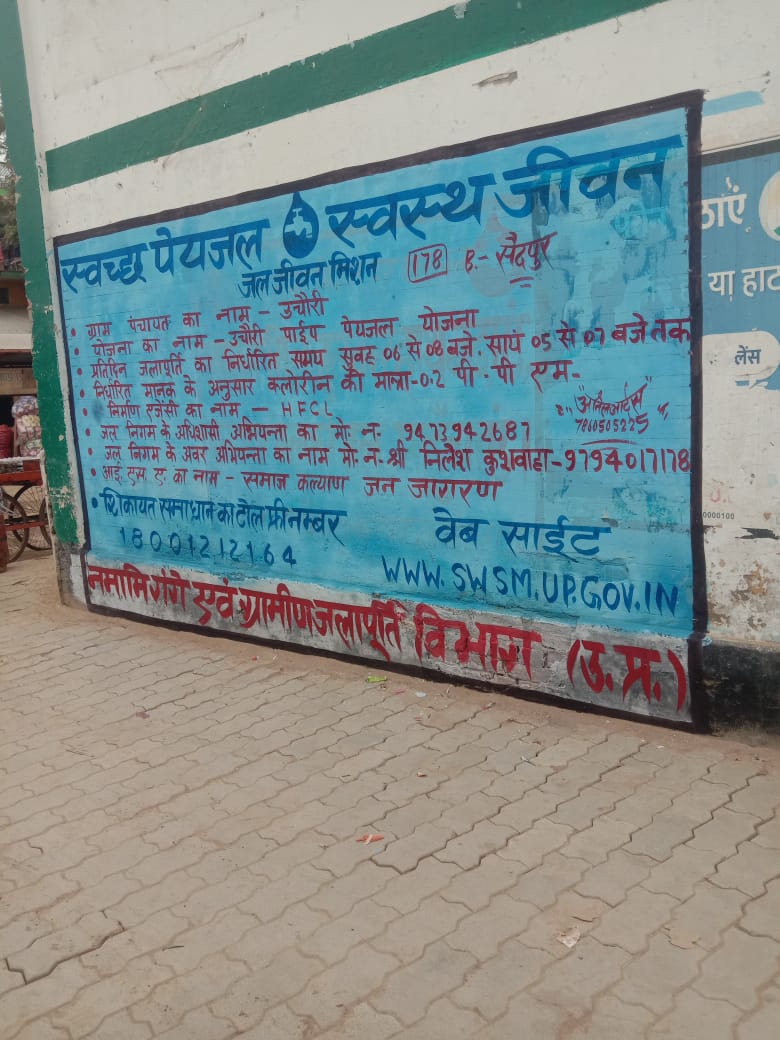 स्वच्छ पेयजल स्वस्थ जीवन
जल जीवन मिशन 178 B.- सैदपुर
• ग्राम पंचायत का नाम - उचौरी
• योजना का नाम - उचौरी पाईप पेयजल योजना
• प्रतिदिन जलापूर्ति का निर्धारित समय सुवह 06 से 08 बजे. सायं 05 से 07 बजे तक
• निर्धारित मानक के अनुसार क्लोरीन की मात्रा-0.2 पी.पी एम-
• निर्माण एजेंसी का नाम - HFCL
• जल निगम के अधिशासी अभियन्ता का मो. न. 9473942687
• जल निगम के अवर अभियन्ता का नाम मो. न.-श्री निलेश कुशवाहा-9794017178
• आई. एस. ए. का नाम - समाज कल्याण जन जागरण
अनिल आर्टस
7860505225
• शिकायत समाधान का टोल फ्री नम्बर
18001212164
वेब साईट
WWW.SWSM.UP.GOV.IN
नमामि गंगे एवं ग्रामीण जलापूर्ति विभाग (उ.प्र.)
ठाएँ
या हाट
लेंस
0000100